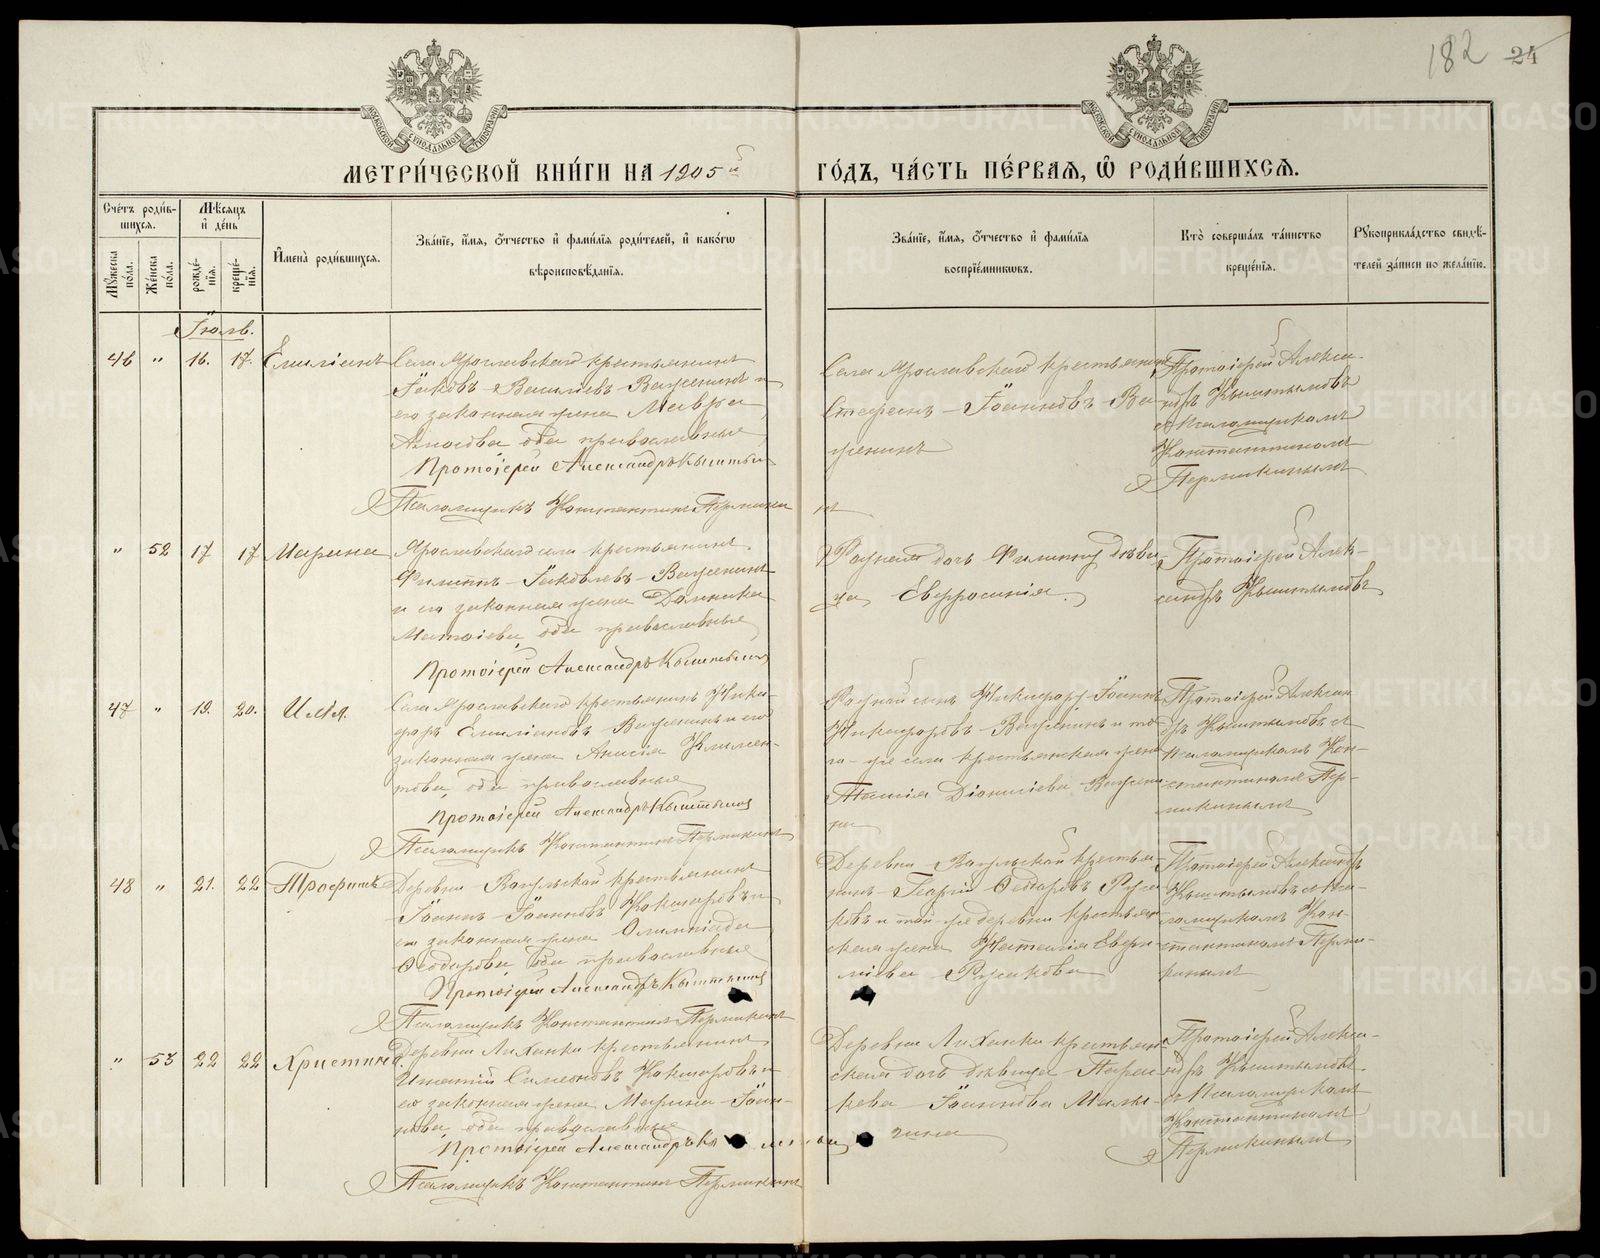 182 24
МОСКОВСКОЙ СѴНОДАЛЬНОЙ ТИПОГРАФІИ
МОСКОВСКОЙ СѴНОДАЛЬНОЙ ТИПОГРАФІИ
МЕТРИ́ЧЕСКОЙ КНИ́ГИ НА 1905й ГО́ДЪ, ЧА́СТЬ ПЕ́РВАѦ, Ѡ҆ РОДИ́ВШИХСѦ.
Сче́тъ роди́вшихсѧ.
Мѣ́сѧцъ и҆ де́нь
Мꙋ́жеска по́ла.
Же́нска по́ла.
рожде́нїѧ.
креще́нїѧ.
И҆мена̀ роди́вшихсѧ.
Зва́нїе, и҆́мѧ, ѻ҆́тчество и҆ фами́лїѧ роди́телей, и҆ како́гѡ
вѣроисповѣ́данїѧ.
Зва́нїе, и҆́мѧ, ѻ҆́тчество и҆ фами́лїѧ
воспрїе́мникѡвъ.
Кто̀ соверша́лъ та́инство
креще́нїѧ.
Рꙋкоприкла́дство свидѣ́телей за́писи по жела́нїю.
Іюль.
46 " 16. 17. Емиліанъ
Села Ярославскаго крестьянинъ
Іаковъ Васильевъ Важенинъ и
его законная жена Мавра
Амосова, оба православные
Протоіерей Александръ Кыштымов
Псаломщикъ Константинъ Пермикин
Села Ярославскаго крестьянинъ
Стефанъ Іоанновъ Ва-
женинъ
Протоіерей Алекса-
ндръ Кыштымовъ
съ псаломщикомъ
Константиномъ
Пермикинымъ
" 52 17 17 Марина
Ярославскаго села крестьянинъ
Филиппъ Іаковлевъ Важенинъ
и его законная жена Домника
оба православные
Протоіерей Александръ Кыштымов
Родная дочь Филиппу дѣви-
ца Евфросинія.
Протоіерей Алек-
сандръ Кыштымовъ
47 " 19. 20. Илія.
Села Ярославскаго крестьянинъ Ники-
форъ Емиліановъ Важенинъ и его
законная жена Анисія Климен-
това, оба православные
Протоіерей Александръ Кыштымов
Псаломщикъ Константинъ Пермикинъ
Родной сынъ Никифору Іоаннъ
Никифоровъ Важенинъ и то-
го-же села крестьянская жена
Діонисіева Важени-
на
Протоіерей Александ-
ръ Кыштымовъ съ
псаломщикомъ Кон-
стантиномъ Пер-
микинымъ
48 " 21. 22 Трофимъ
Деревни Вогульской крестьянинъ
Іоаннъ Іоанновъ Кокшаровъ и
его законная жена Олимпіада
Ѳеодорова, оба православные
Протоіерей Александръ Кыштымов
Псаломщикъ Константинъ Пермикинъ
Деревни Вогульской крестья-
нинъ Георгій Ѳеодоровъ Руса-
ковъ и той-же деревни крестьян-
ская жена Наталія
Русакова
Протоіерей Александръ
Кыштымовъ съ пса-
ломщикомъ Кон-
стантиномъ Перми-
кинымъ
" 53 22 22 Христина.
Деревни Лиханки крестьянинъ
Игнатій Симеоновъ Кокшаровъ и
его законная жена Марина Іоан-
нова, оба православные
Протоіерей Александръ
Псаломщикъ Константинъ Пермикинъ
Деревни Лиханки крестьян-
ская дочь дѣвица Параске-
Іоаннова
Протоіерей Алекса-
ндръ Кыштымовъ
съ Псаломщикомъ
Константиномъ
Пермикинымъ
METRIKI.GASO-URAL.RU